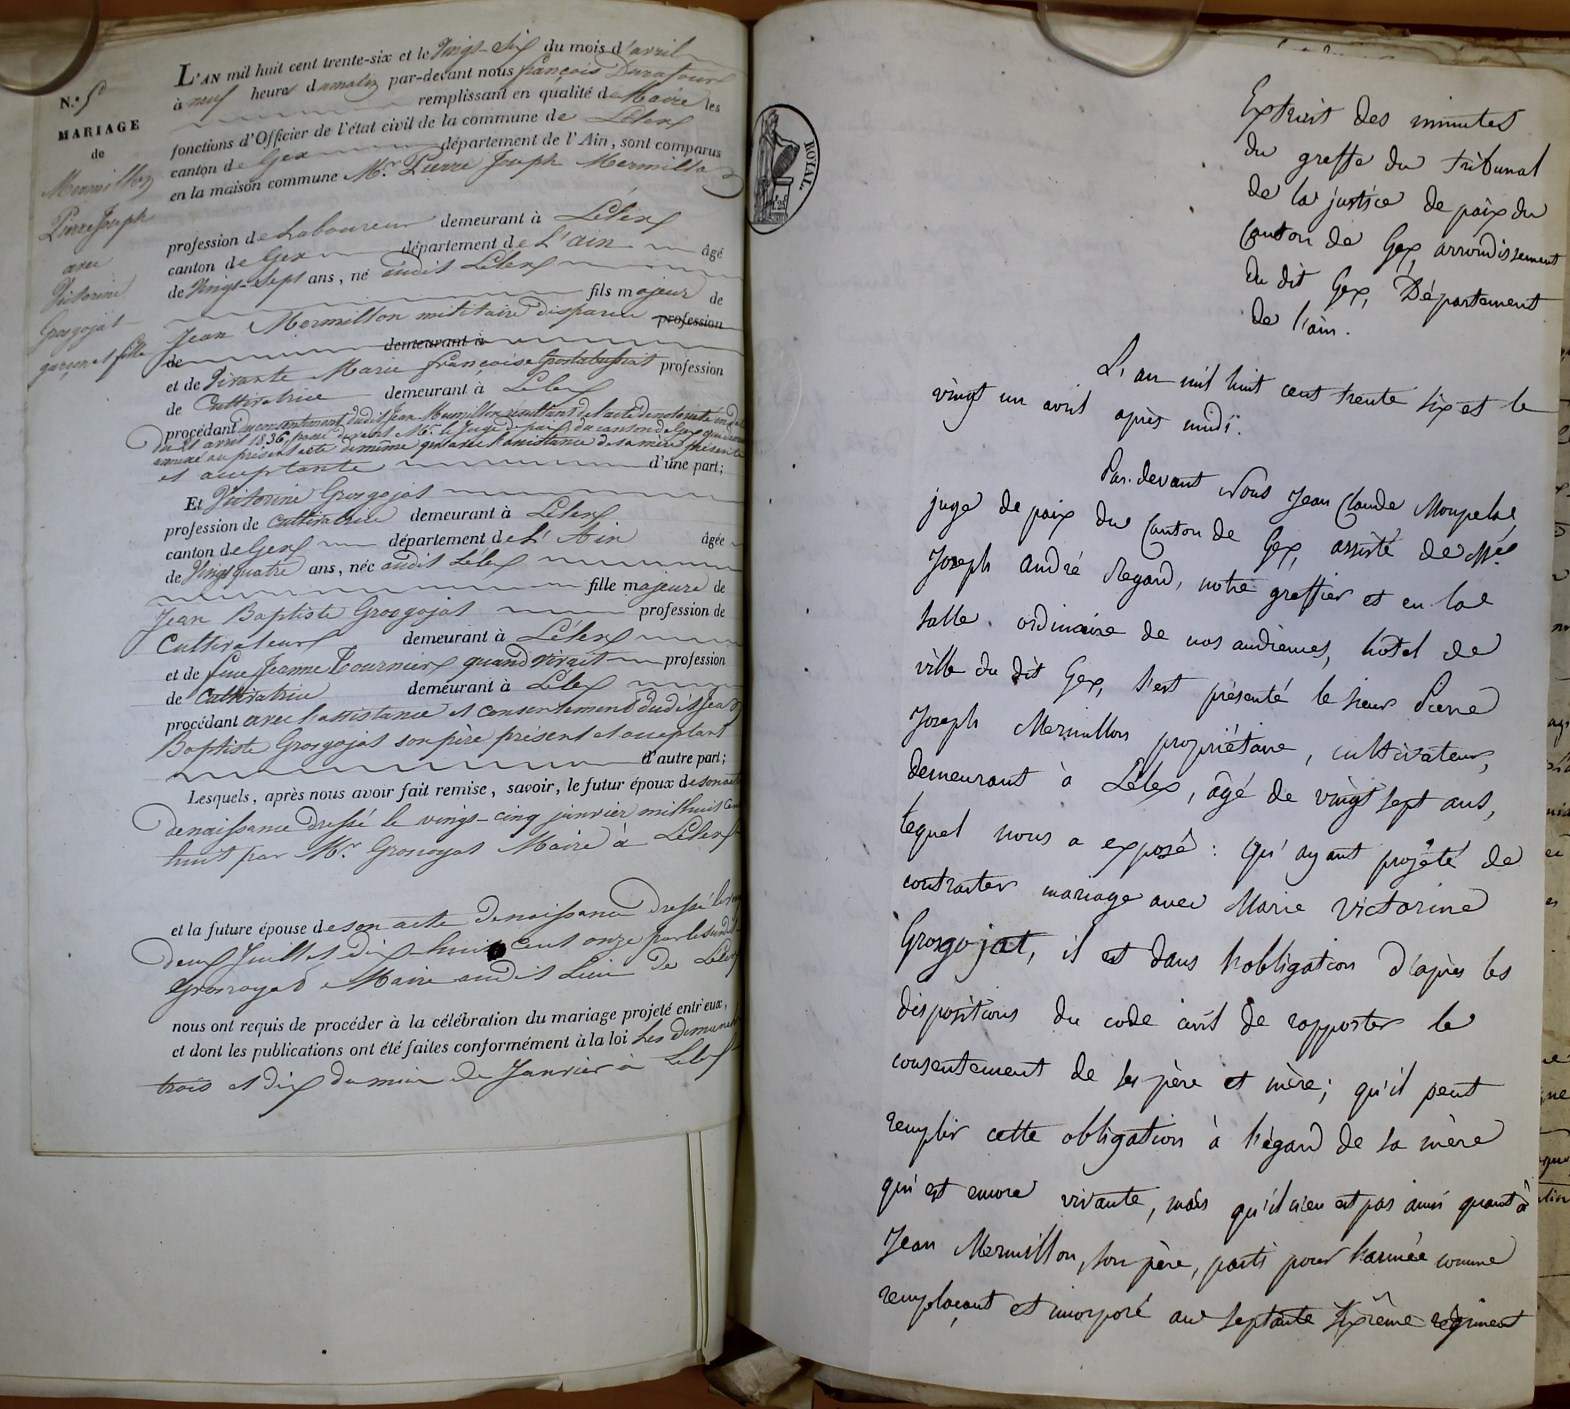 N.° 5
MARIAGE
de
Mermillon
Pierre Joseph
avec
Victorine
Grosgojat
garçon et fille
L'AN mil huit cent trente-six et le Vingt-Six du mois d'avril
à neuf heures du matin par-devant nous françois Duraffour
remplissant en qualité de Maire les
fonctions d'Officier de l'état civil de la commune de Lélex
canton de Gex département de l'Ain, sont comparus
en la maison commune Mr. Pierre Joseph Mermillon
profession de Laboureur demeurant à Lélex
canton de Gex département de L'ain âgé
de Vingt-Sept ans, né audit Lélex
fils majeur de
Jean Mermillon militaire disparu profession
de demeurant à
et de Vivante Marie françoise profession
de Cultivatrice demeurant à Lélex
procédant du consentement dudit Jean Mermillon résultant de l'acte de notoriété en date
du 21 avril 1836, passé devant Mr. le Juge de paix du canton de Gex qui sera
annexé au présent acte de même qu'avec l'assistance de sa mère présente
et acceptante d'une part;
Et Victorine Grosgojat
profession de Cultivatrice demeurant à Lélex
canton de Gex département de L'Ain âgée
de Vingt quatre ans, née audit Lélex
fille majeure de
Jean Baptiste Grosgojat profession de
Cultivateur demeurant à Lélex
et de feue Jeanne Tournier quand vivait profession
de Cultivatrice demeurant à Lélex
procédant avec l'assistance et consentement dudit Jean
Baptiste Grosgojat son père présent et acceptant
d'autre part;
Lesquels, après nous avoir fait remise, savoir, le futur époux de son acte
de naissance dressé le vingt-cinq janvier mil huit cent
huit par Mr. Grosgojat Maire à Lélex
et la future épouse de son acte de naissance dressé le
deux Juillet dix-huit cent onze par le susdit
Grosgojat Maire audit Lieu de Lélex
nous ont requis de procéder à la célébration du mariage projeté entr'eux,
et dont les publications ont été faites conformément à la loi les dimanches
trois et dix du mois de Janvier à Lélex
ROYAL.
Extrait des minutes
du greffe du tribunal
de la justice de paix du
Canton de Gex, arrondissement
du dit Gex, Département
de l'ain.
L'an mil huit cent trente six et le
vingt un avril après midi.
Par devant Nous Jean Claude Monpela
juge de paix du Canton de Gex, assisté de Me.
Joseph André Regard, notre greffier et en la
salle ordinaire de nos audiences, hôtel de
ville du dit Gex, s'est présenté le sieur Pierre
Joseph Mermillon propriétaire, cultivateur,
demeurant à Lélex, âgé de vingt sept ans,
lequel nous a exposé : Qu'ayant projeté de
contracter mariage avec Marie Victorine
Grosgojat, il est dans l'obligation d'après les
dispositions du code civil de rapporter le
consentement de ses père et mère; qu'il peut
remplir cette obligation à l'égard de sa mère
qui est encore vivante, mais qu'il n'en est pas ainsi quant à
Jean Mermillon, son père, parti pour l'armée comme
remplaçant et incorporé au septante sixième régiment